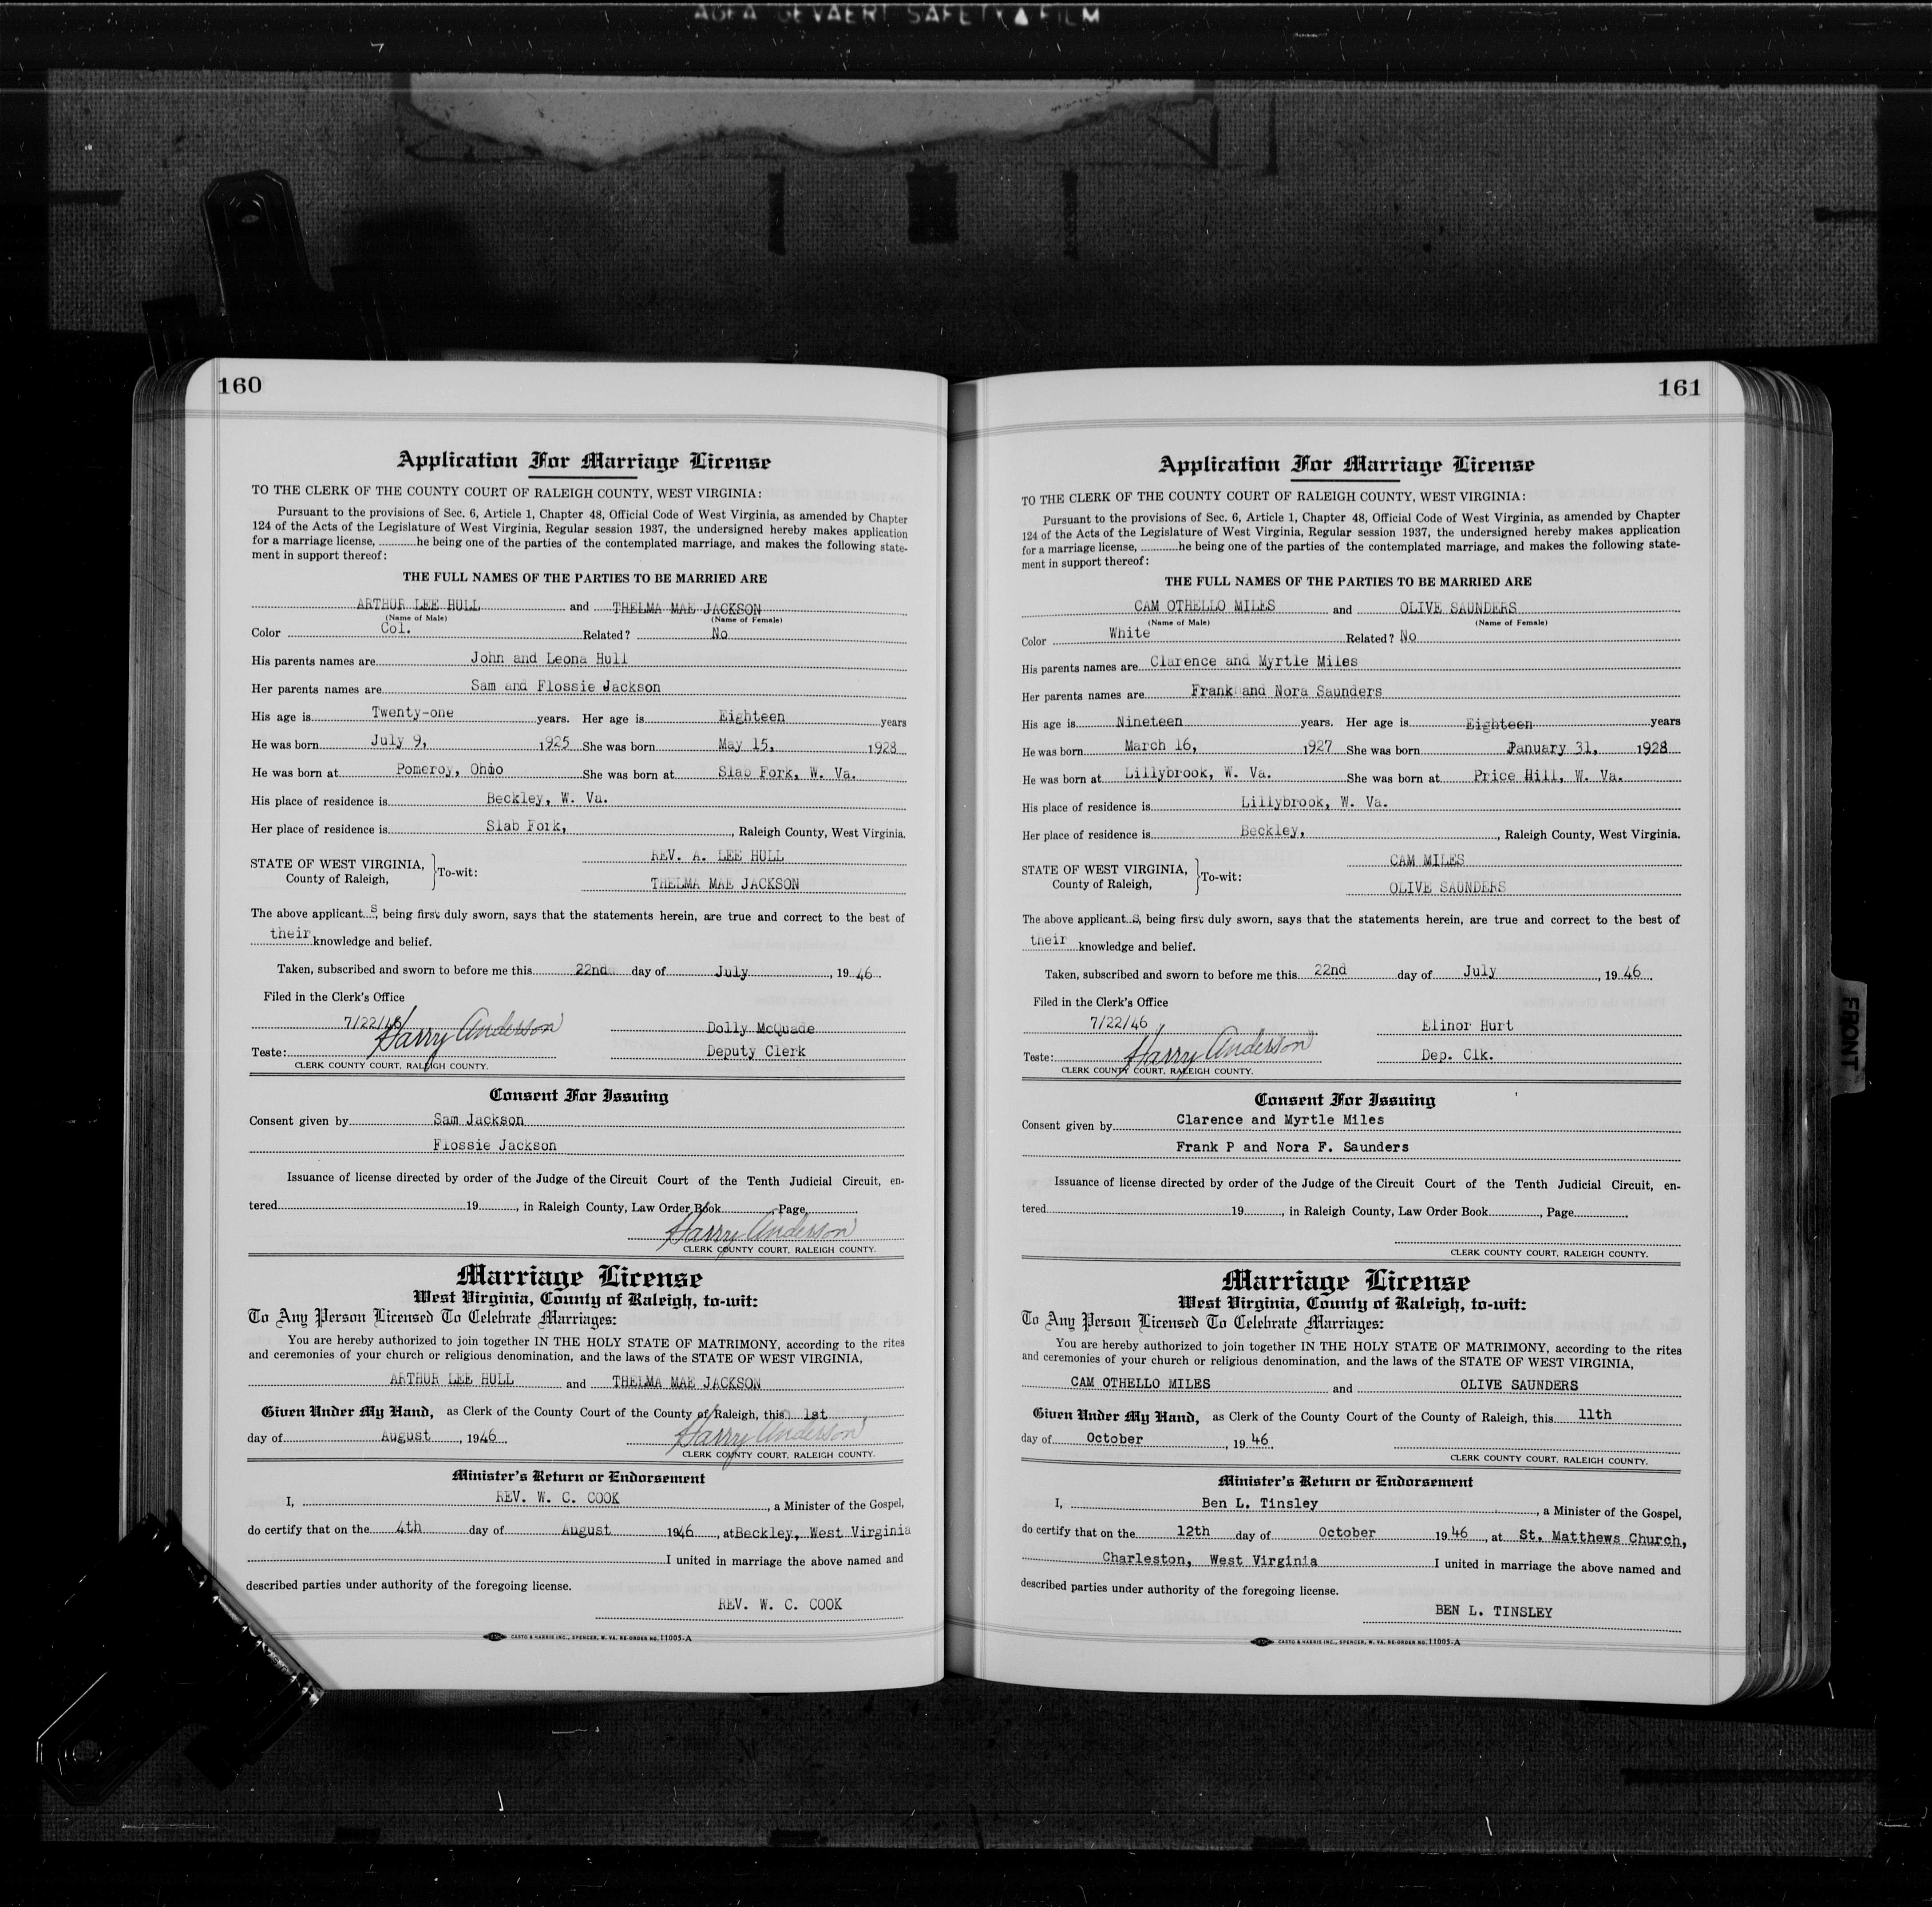 AGFA GEVAERT SAFETY▲FILM
160
Application For Marriage License
TO THE CLERK OF THE COUNTY COURT OF RALEIGH COUNTY, WEST VIRGINIA:
Pursuant to the provisions of Sec. 6, Article 1, Chapter 48, Official Code of West Virginia, as amended by Chapter
124 of the Acts of the Legislature of West Virginia, Regular session 1937, the undersigned hereby makes application
for a marriage license, ...........he being one of the parties of the contemplated marriage, and makes the following state-
ment in support thereof:
THE FULL NAMES OF THE PARTIES TO BE MARRIED ARE
ARTHUR LEE HULL and THELMA MAE JACKSON
(Name of Male) (Name of Female)
Color Col. Related? No
His parents names are John and Leona Hull
Her parents names are Sam and Flossie Jackson
His age is Twenty-one years. Her age is Eighteen years
He was born July 9, 1925 She was born May 15, 1928
He was born at Pomeroy, Ohio She was born at Slab Fork, W. Va.
His place of residence is Beckley, W. Va.
Her place of residence is Slab Fork, , Raleigh County, West Virginia.
STATE OF WEST VIRGINIA, County of Raleigh, }To-wit: REV. A. LEE HULL
THELMA MAE JACKSON
The above applicant s, being first duly sworn, says that the statements herein, are true and correct to the best of
their knowledge and belief.
Taken, subscribed and sworn to before me this 22nd day of July , 19 46.
Filed in the Clerk's Office
7/22/46 Dolly McQuade
Teste: Harry Anderson Deputy Clerk
CLERK COUNTY COURT, RALEIGH COUNTY.
Consent For Issuing
Consent given by Sam Jackson
Flossie Jackson
Issuance of license directed by order of the Judge of the Circuit Court of the Tenth Judicial Circuit, en-
tered 19 , in Raleigh County, Law Order Book , Page .
Harry Anderson
CLERK COUNTY COURT, RALEIGH COUNTY.
Marriage License
West Virginia, County of Raleigh, to-wit:
To Any Person Licensed To Celebrate Marriages:
You are hereby authorized to join together IN THE HOLY STATE OF MATRIMONY, according to the rites
and ceremonies of your church or religious denomination, and the laws of the STATE OF WEST VIRGINIA,
ARTHUR LEE HULL and THELMA MAE JACKSON
Given Under My Hand, as Clerk of the County Court of the County of Raleigh, this 1st
day of August , 1946. Harry Anderson
CLERK COUNTY COURT, RALEIGH COUNTY.
Minister's Return or Endorsement
I, REV. W. C. COOK , a Minister of the Gospel,
do certify that on the 4th day of August 1946 , at Beckley, West Virginia
I united in marriage the above named and
described parties under authority of the foregoing license.
REV. W. C. COOK
CASTO & HARRIS INC., SPENCER, W. VA. RE-ORDER NO. 11005-A
161
Application For Marriage License
TO THE CLERK OF THE COUNTY COURT OF RALEIGH COUNTY, WEST VIRGINIA:
Pursuant to the provisions of Sec. 6, Article 1, Chapter 48, Official Code of West Virginia, as amended by Chapter
124 of the Acts of the Legislature of West Virginia, Regular session 1937, the undersigned hereby makes application
for a marriage license, ...........he being one of the parties of the contemplated marriage, and makes the following state-
ment in support thereof:
THE FULL NAMES OF THE PARTIES TO BE MARRIED ARE
CAM OTHELLO MILES and OLIVE SAUNDERS
(Name of Male) (Name of Female)
Color White Related? No
His parents names are Clarence and Myrtle Miles
Her parents names are Frank and Nora Saunders
His age is Nineteen years. Her age is Eighteen years
He was born March 16, 1927 She was born January 31, 1928
He was born at Lillybrook, W. Va. She was born at Price Hill, W. Va.
His place of residence is Lillybrook, W. Va.
Her place of residence is Beckley, , Raleigh County, West Virginia.
STATE OF WEST VIRGINIA, County of Raleigh, }To-wit: CAM MILES
OLIVE SAUNDERS
The above applicant s, being first duly sworn, says that the statements herein, are true and correct to the best of
their knowledge and belief.
Taken, subscribed and sworn to before me this 22nd day of July , 19 46.
Filed in the Clerk's Office
7/22/46 Elinor Hurt
Teste: Harry Anderson Dep. Clk.
CLERK COUNTY COURT, RALEIGH COUNTY.
Consent For Issuing
Consent given by Clarence and Myrtle Miles
Frank P and Nora F. Saunders
Issuance of license directed by order of the Judge of the Circuit Court of the Tenth Judicial Circuit, en-
tered 19 , in Raleigh County, Law Order Book , Page .
CLERK COUNTY COURT, RALEIGH COUNTY.
Marriage License
West Virginia, County of Raleigh, to-wit:
To Any Person Licensed To Celebrate Marriages:
You are hereby authorized to join together IN THE HOLY STATE OF MATRIMONY, according to the rites
and ceremonies of your church or religious denomination, and the laws of the STATE OF WEST VIRGINIA,
CAM OTHELLO MILES and OLIVE SAUNDERS
Given Under My Hand, as Clerk of the County Court of the County of Raleigh, this 11th
day of October , 19 46.
CLERK COUNTY COURT, RALEIGH COUNTY.
Minister's Return or Endorsement
I, Ben L. Tinsley , a Minister of the Gospel,
do certify that on the 12th day of October 19 46 , at St. Matthews Church,
Charleston, West Virginia I united in marriage the above named and
described parties under authority of the foregoing license.
BEN L. TINSLEY
CASTO & HARRIS INC., SPENCER, W. VA. RE-ORDER NO. 11005-A
FRONT